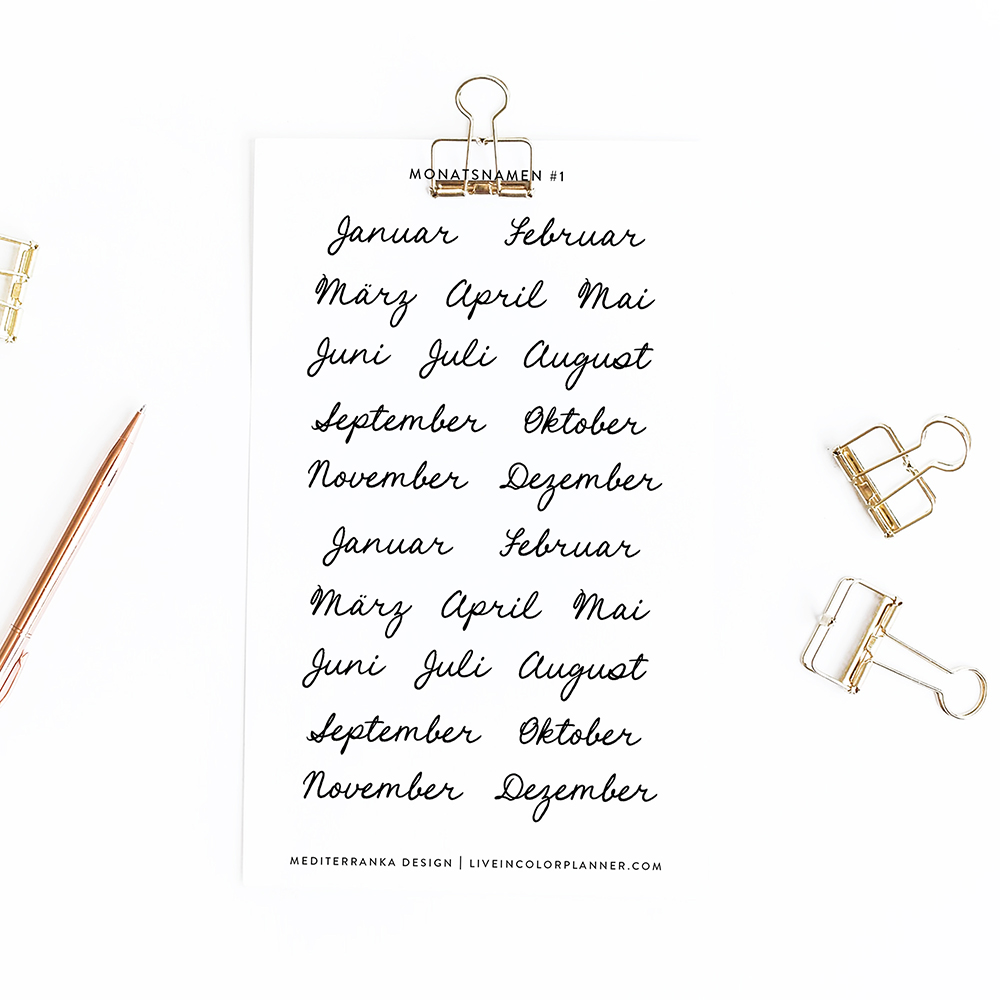 MONATSNAMEN #1
Januar Februar
März April Mai
Juni Juli August
September Oktober
November Dezember
Januar Februar
März April Mai
Juni Juli August
September Oktober
November Dezember
MEDITERRANKA DESIGN | LIVEINCOLORPLANNER.COM